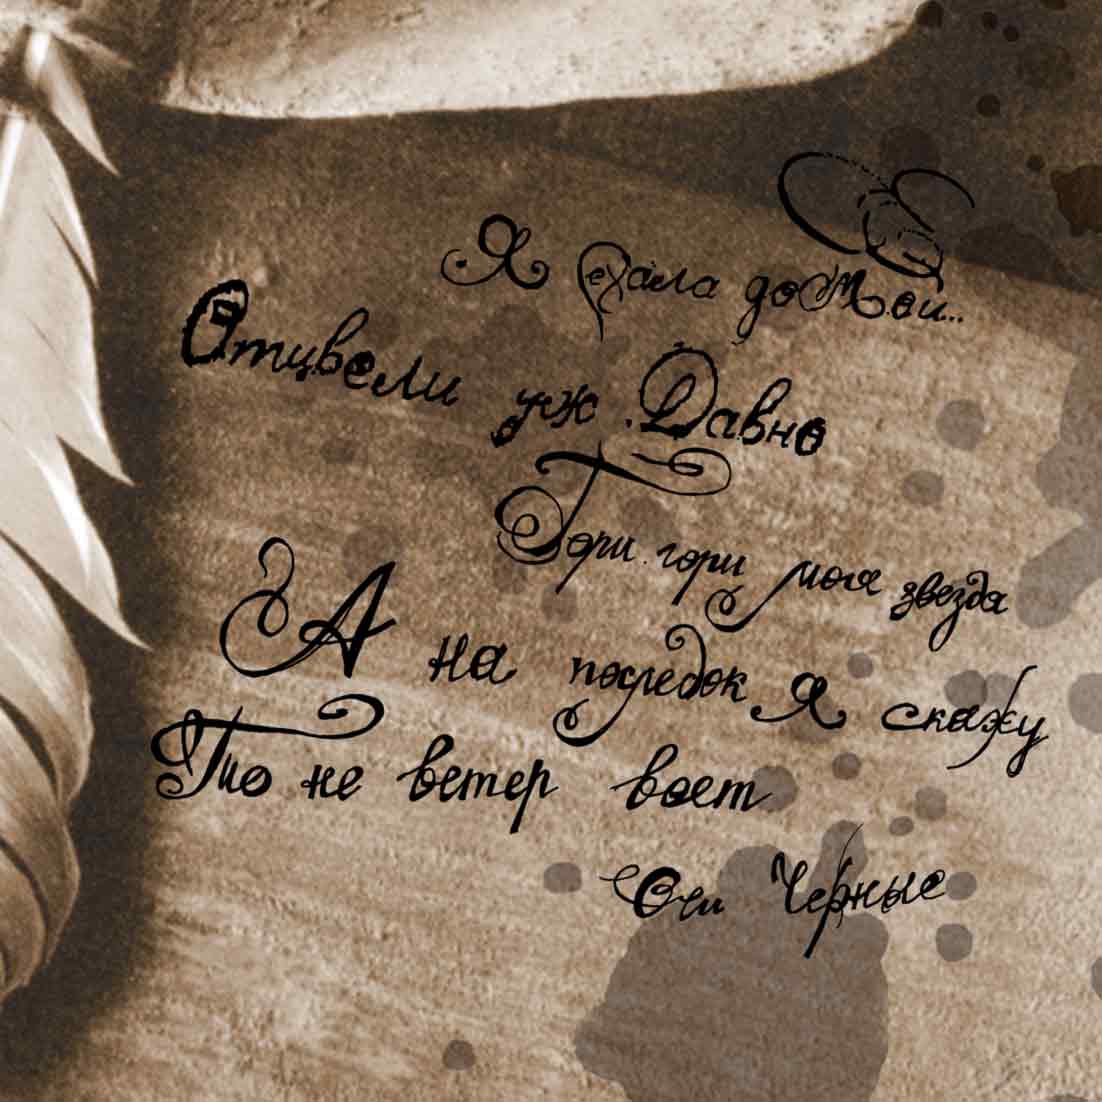 Я ехала домой...
Отцвели уж Давно
Гори гори моя звезда
А на последок я скажу
То не ветер воет
Очи Черные